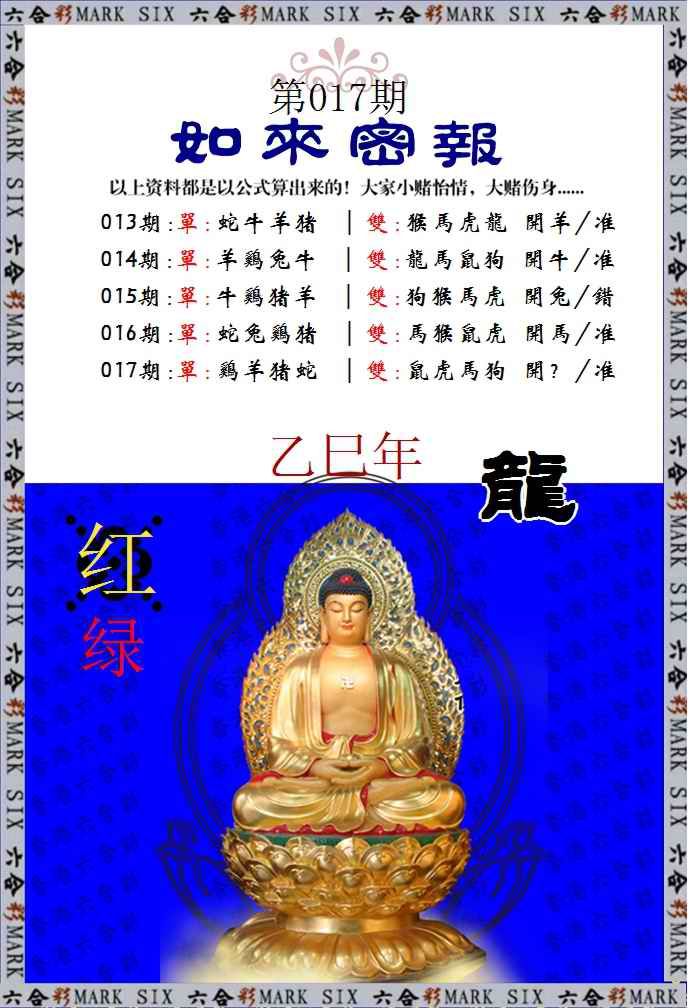 六合彩MARK SIX 六合彩MARK SIX 六合彩MARK SIX 六合彩MARK SIX
第017期
如來密報
以上资料都是以公式算出来的！大家小赌怡情，大赌伤身......
013期:單:蛇牛羊猪 |雙:猴馬虎龍 開羊/准
014期:單:羊鷄兔牛 |雙:龍馬鼠狗 開牛/准
015期:單:牛鷄猪羊 |雙:狗猴馬虎 開兔/錯
016期:單:蛇兔鷄猪 |雙:馬猴鼠虎 開馬/准
017期:單:鷄羊猪蛇 |雙:鼠虎馬狗 開? /准
乙巳年
龍
红
绿
六合彩MARK SIX 六合彩MARK SIX 六合彩MARK SIX 六合彩MARK SIX